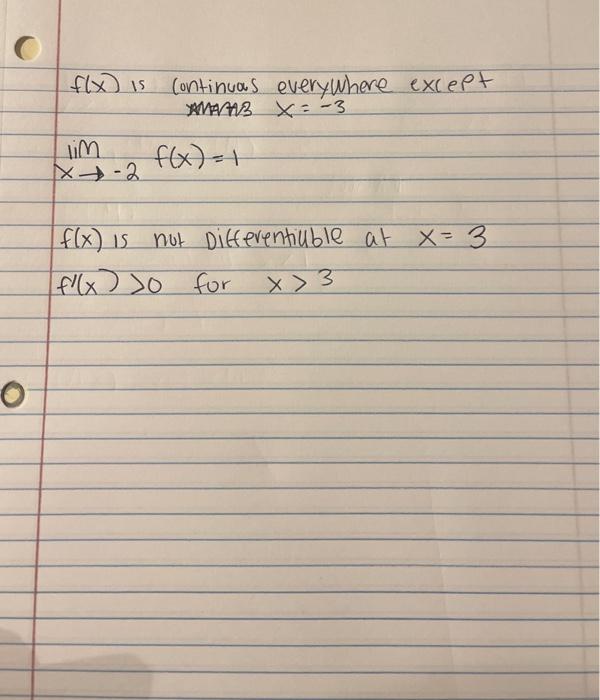 f(x) is continuous everywhere except
x = -3
lim x→-2 f(x) = 1
f(x) is not Differentiable at x = 3
f'(x) >0 for x > 3